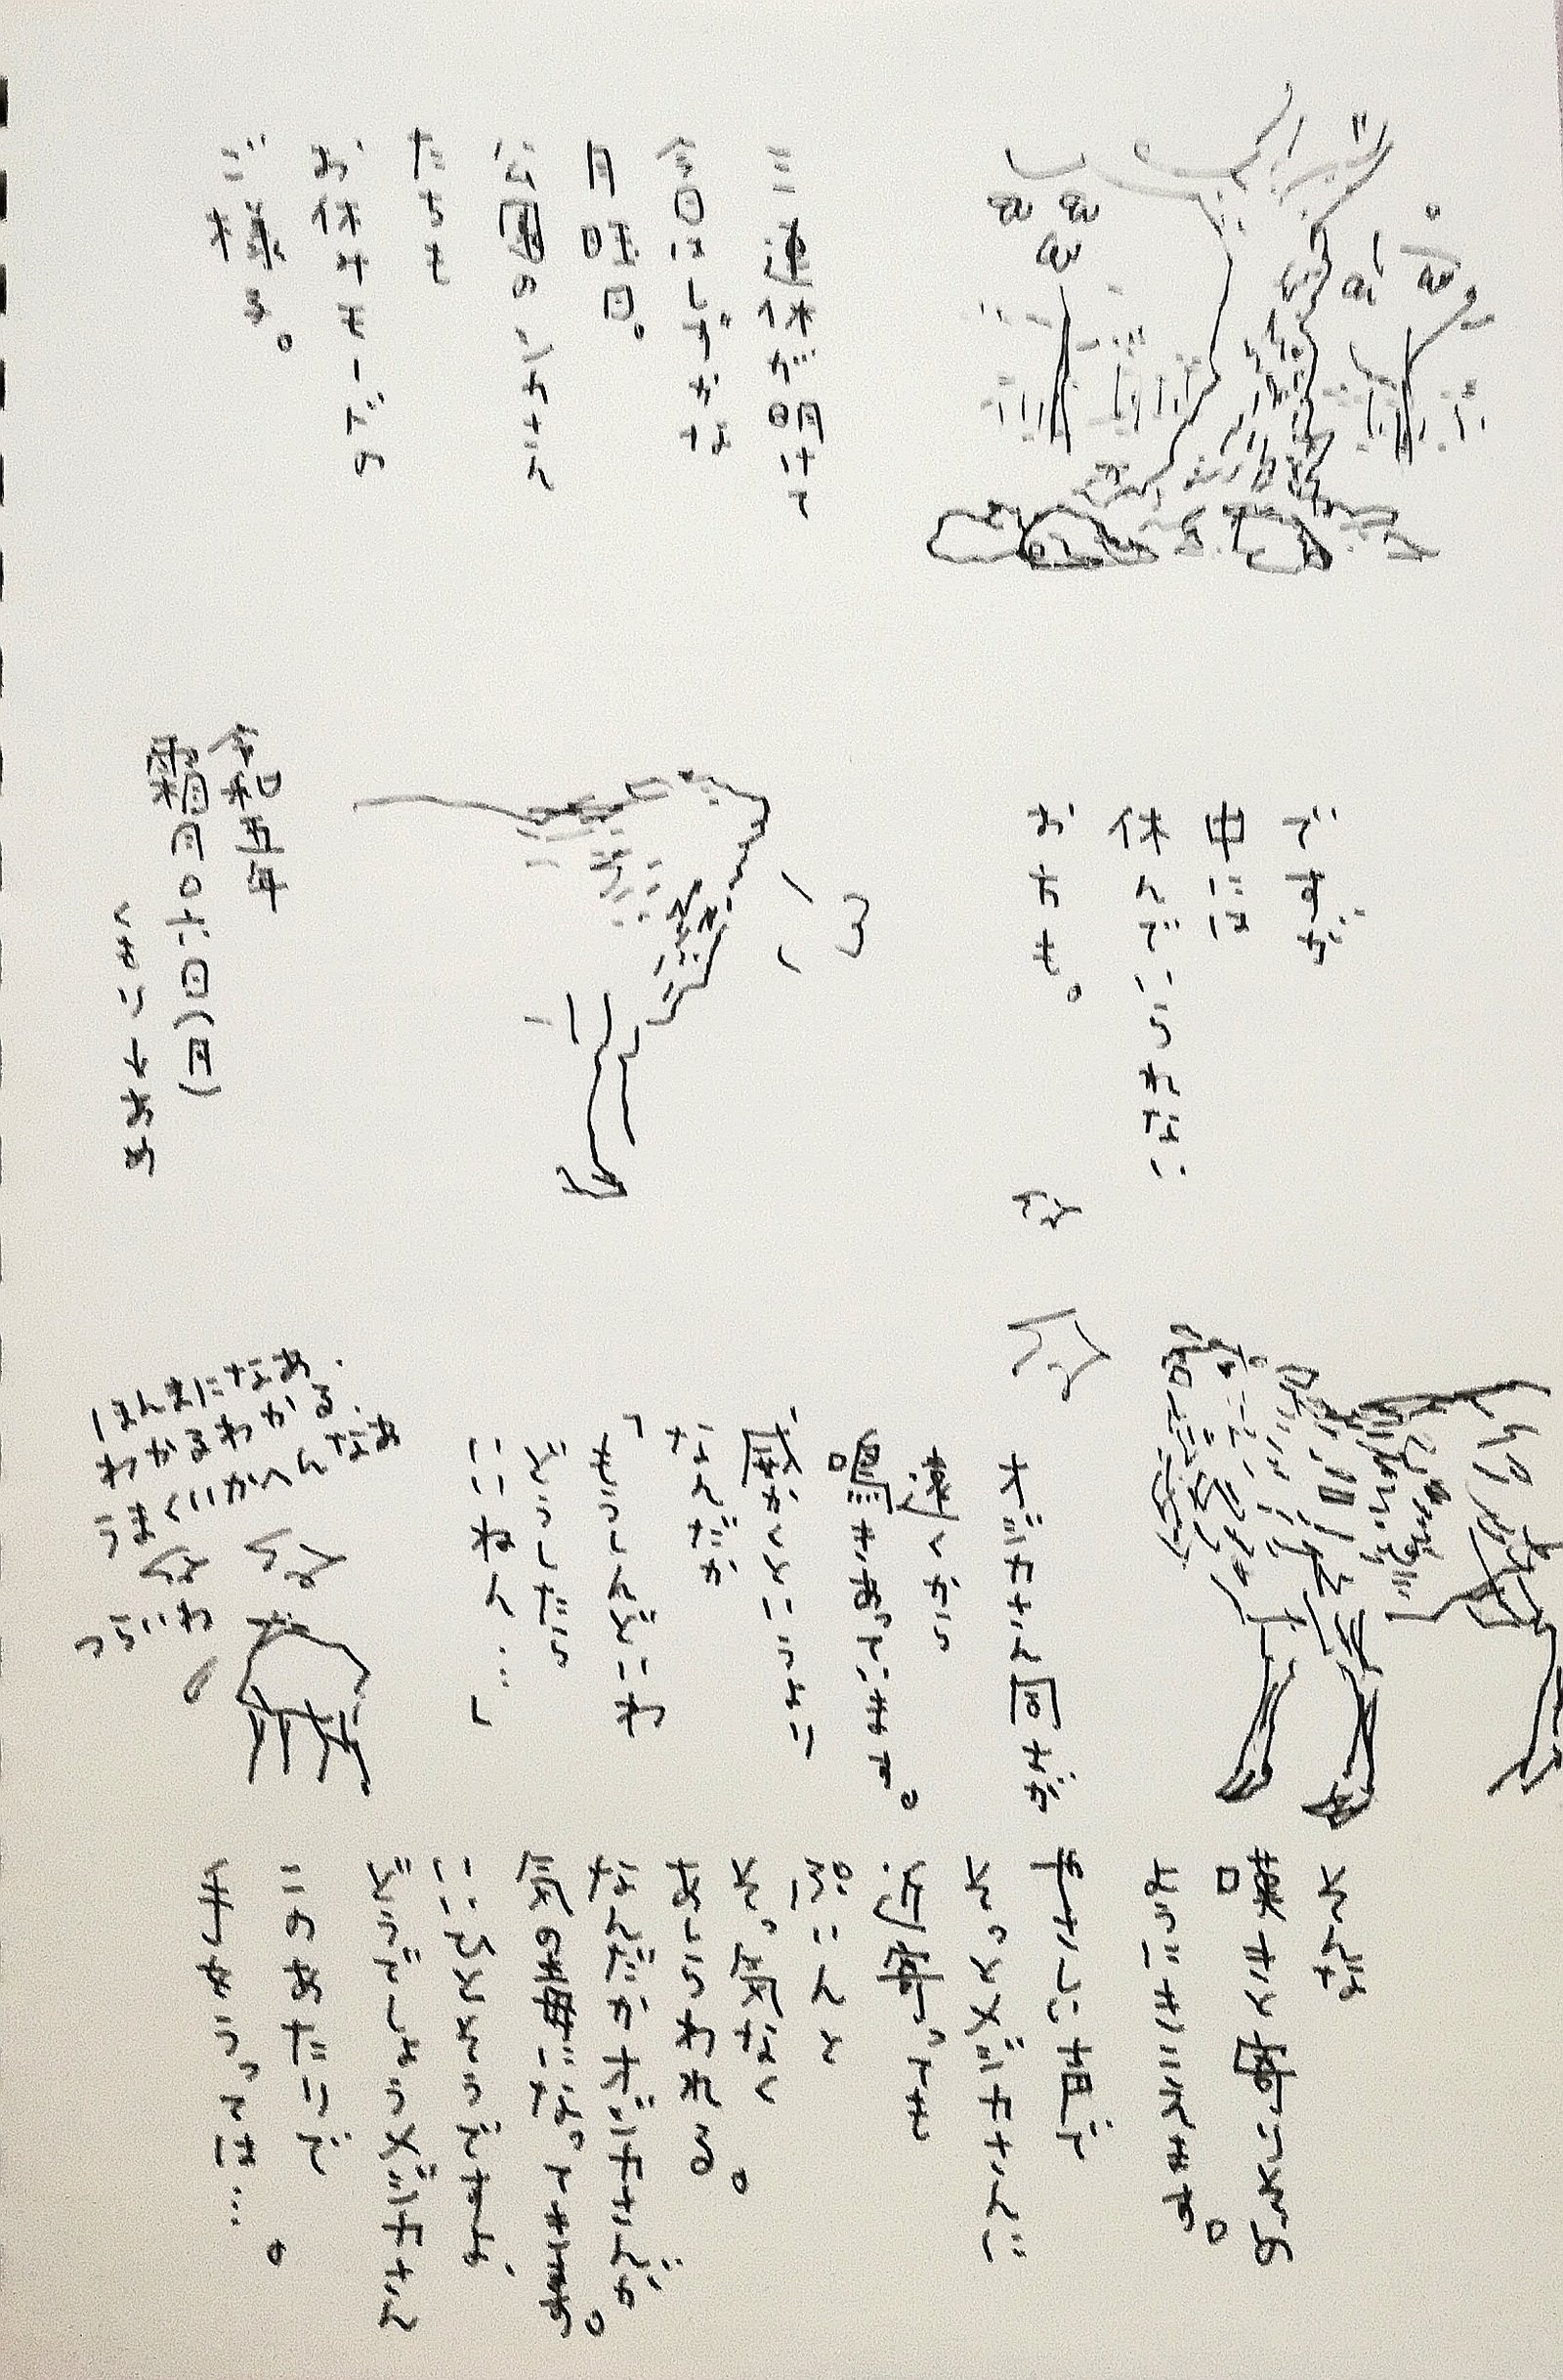 三連休が明けて
今日はしずかな
月曜日。
公園のシカさん
たちも
お休みモードの
ご様子。
ですが
中には
休んでいられない
お方も。
オジカさん同士が
遠くから
鳴きあっています。
威かくというより
なんだか
「もうしんどいわ
どうしたら
いいねん…」
ほんまになあ
わかるわかる
うまくいかへんなあ
つらいわ
そんな
嘆きと寄りそいの
ようにきこえます。
やさしい声で
そっとメジカさんに
近寄っても
ぷいんと
そっ気なく
あしらわれる。
なんだかオジカさんが
気の毒になってきます。
いいひとそうですよ、
どうでしょうメジカさん
このあたりで
手をうっては…。
令和五年
霜月〇六日(月)
くもりときどきあめ